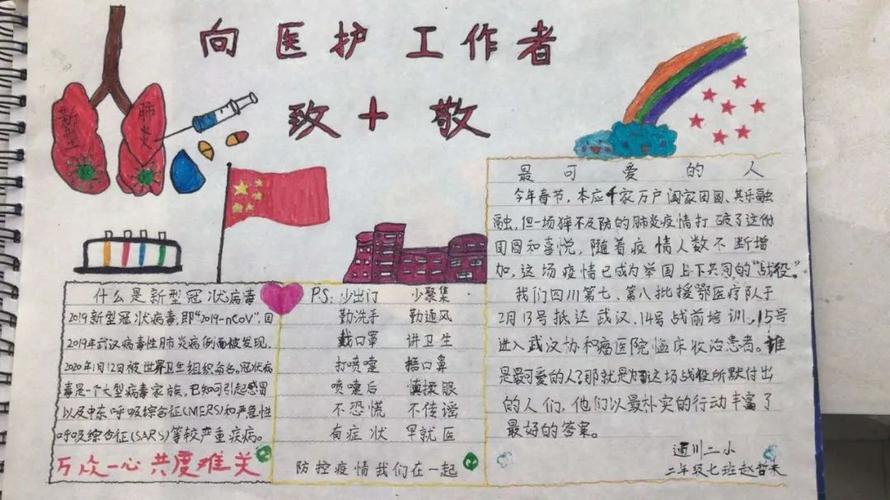 向医护工作者
致十敬
新型
肺炎
什么是新型冠状病毒
2019新型冠状病毒,即"2019-nCoV",因
2019年武汉病毒性肺炎病例而被发现,
2020年1月12被世界卫生组织命名。冠状病
毒是一个大型病毒家族,已知可引起感冒
以及中东呼吸综合征(MERS)和严重急性
呼吸综合征(SARS)等较严重疾病。
万众一心 共度难关
PS:少出门 少聚集
勤洗手 勤通风
戴口罩 讲卫生
打喷嚏 捂口鼻
喷嚏后 慎揉眼
不恐慌 不传谣
有症状 早就医
防控疫情我们在一起
最可爱的人
今年春节,本应千家万户阖家团圆、其乐融
融,但一场猝不及防的肺炎疫情打破了这份
团圆和喜悦,随着疫情人数不断增
加,这场疫情已成为举国上下共同的"战役"。
我们四川第七、第八批援鄂医疗队于
2月13号抵达武汉,14号战前培训,15号
进入武汉协和肿瘤医院临床收治患者。谁
是最可爱的人?那就是为这场战役所默付出
的人们,他们以最朴实的行动丰富了
最好的答案。
通川二小
二年级七班赵哲